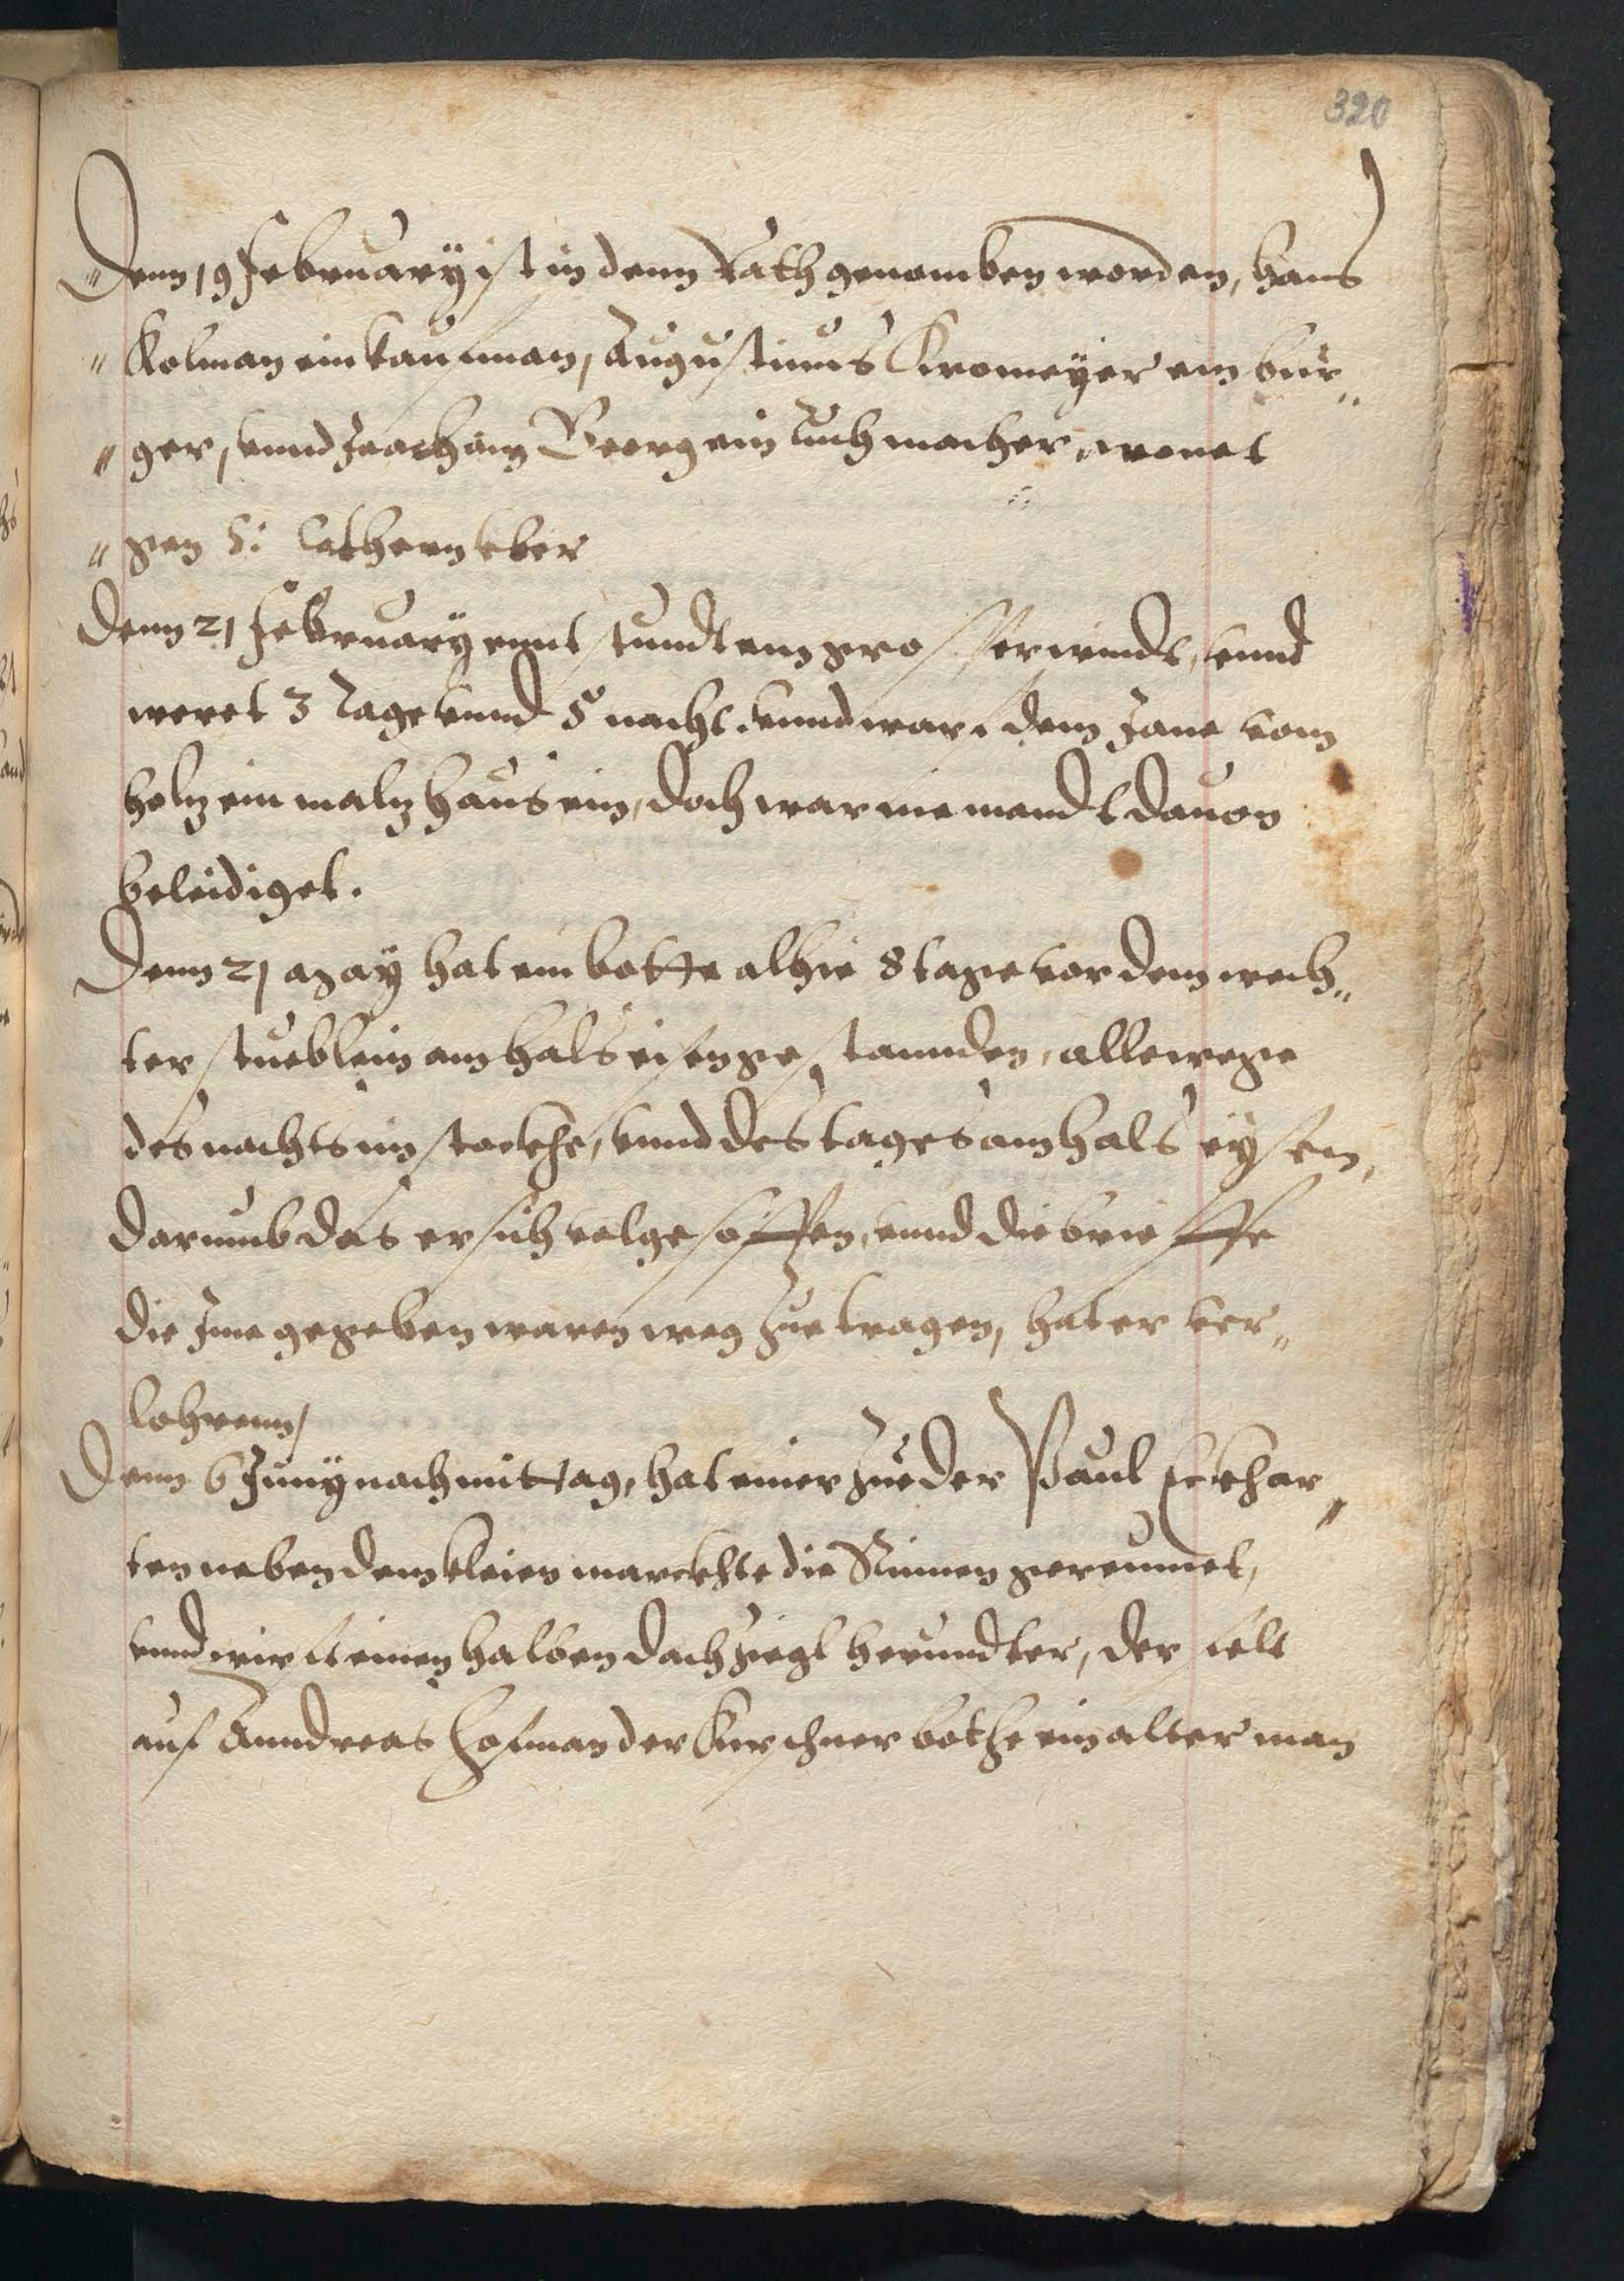 320
Denn 19 February ist in denn Rath genomben worden, hans
" Kolman ein kaufman, Augustinus Kromeyer ein bur„
" ger, vnnd Joachim Georg ein tuchmacher, wonet
" gen S: Cathern vber
Denn 21 February enntstundt ein grosser windt, vnnd
weret 3 Tage vnnd 5 nacht. vnnd warf dem Jane vom
holz ein malzhaus ein, doch war niemandt dauon
beleidiget.
Denn 21 May hat ein botte alhie 8 tage vor dem wech„
ter stueblein am halseisen gestannden, allewege
des nachts im stockhe, vnnd des tages am hals eysen,
darumb das er sich volgesoffen, vnnd die brieffe
die Jme gegeben waren weg zue tragen, hat er ver„
lohrenn,
Denn 6 Juny nachmittag, hat einer zue der Paul Eckhar„
ten neben dem kleien marckhte die Rinnen gereumet,
vnnd wirft einen halben dachziegl herundter, der felt
auf Anndreas Hofman der Kurschner bothe ein alter man